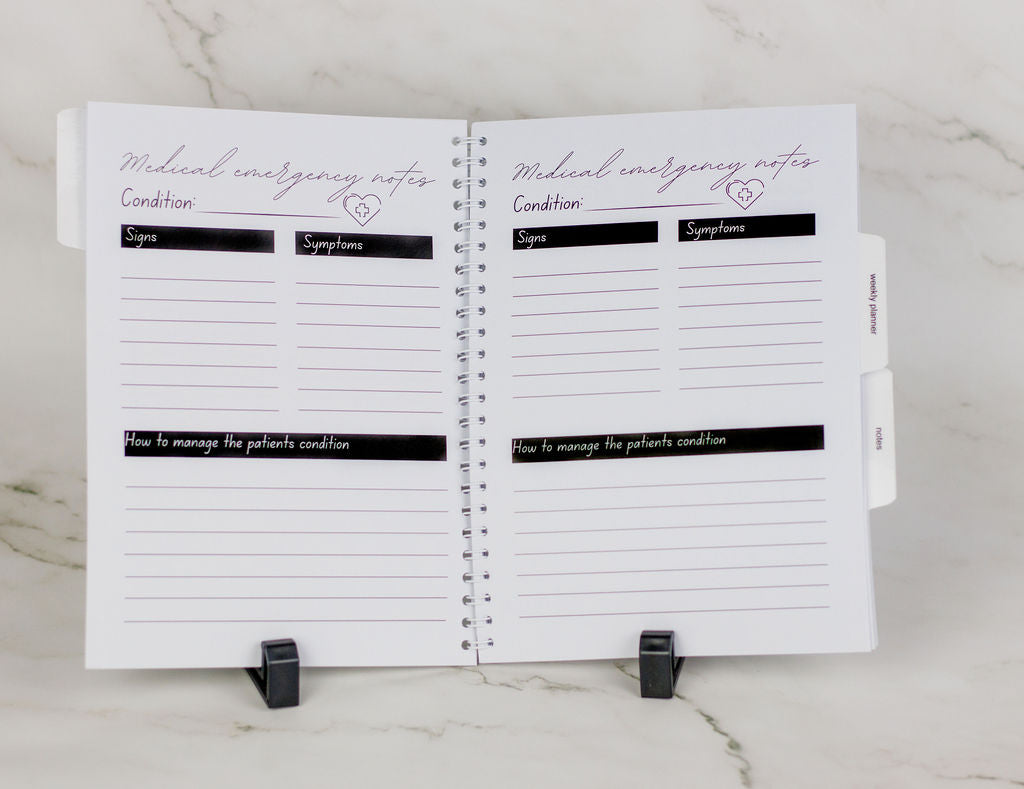 Medical emergency notes
Condition:
Signs
Symptoms
How to manage the patients condition
Medical emergency notes
Condition:
Signs
Symptoms
How to manage the patients condition
weekly planner
notes